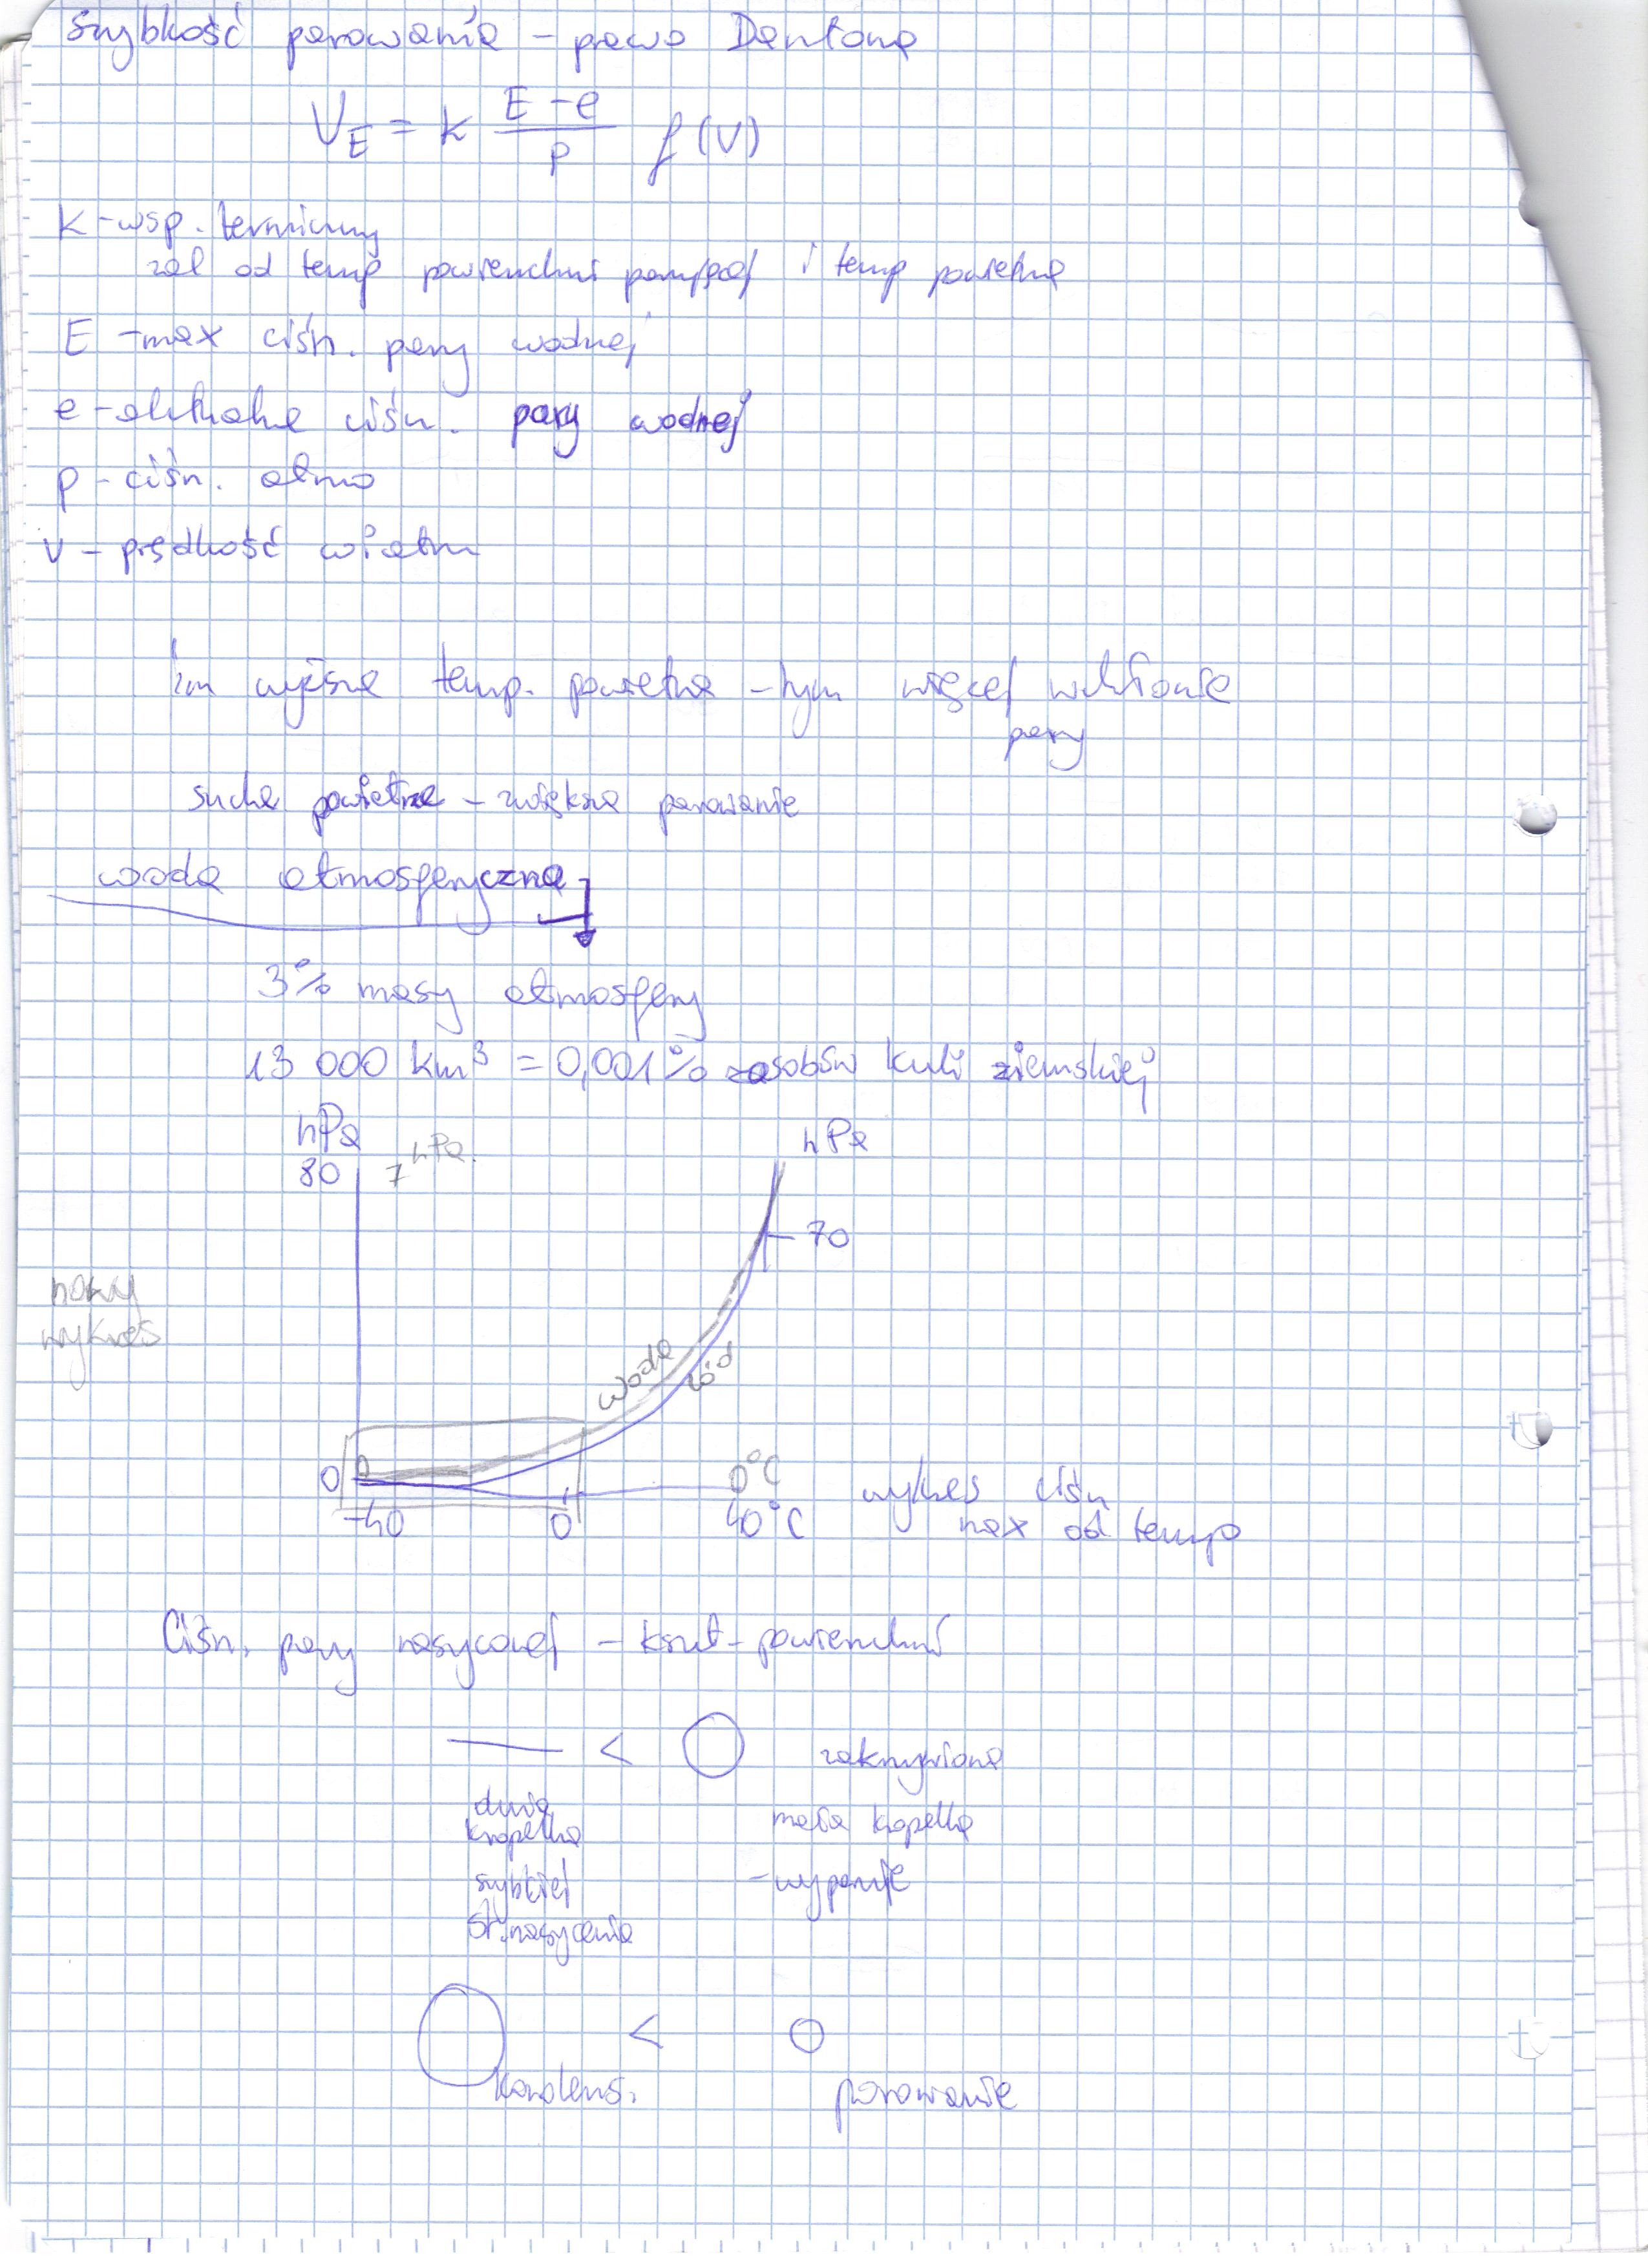 szybkość parowania - prawo Daltona
V_E = k (E - e)/p f(V)
k - wsp. termiczny
zal od temp powierzchni parującej i temp powietrza
E - max ciśn. pary wodnej
e - aktualne ciśn. pary wodnej
p - ciśn. atmo
v - prędkość wiatru
im wyższa temp. powietrza - tym więcej wchłonie
pary
suche powietrze - zwiększa parowanie
woda atmosferyczna
3% masy atmosfery
13 000 km³ = 0,001% zasobów kuli ziemskiej
hPa
7 hPa.
hPa
80
70
nowy
wykres
woda
lód
0
0
0°C
-40
0
40°C
wykres ciśn
max od temp
Ciśn. pary nasyconej - kształt powierzchni
<
zakrzywiona
duża
kropelka
mała kropelka
szybciej
- wyparuje
st. nasycenia
<
kondens.
parowanie